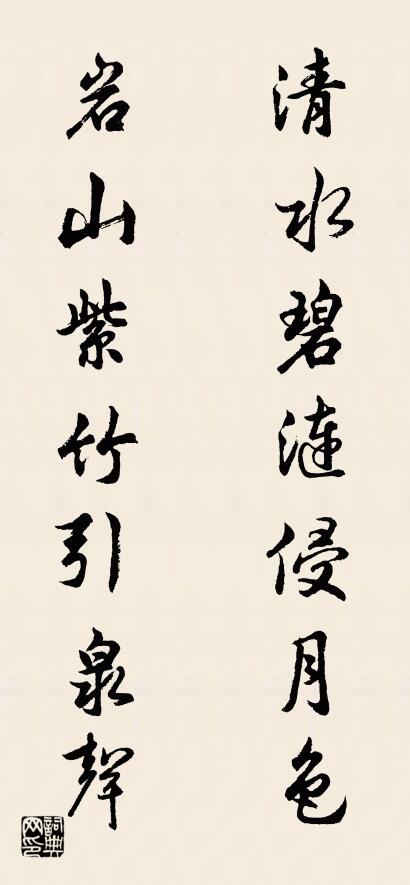 清水碧漣侵月色
岩山紫竹引泉聲
詞典網印